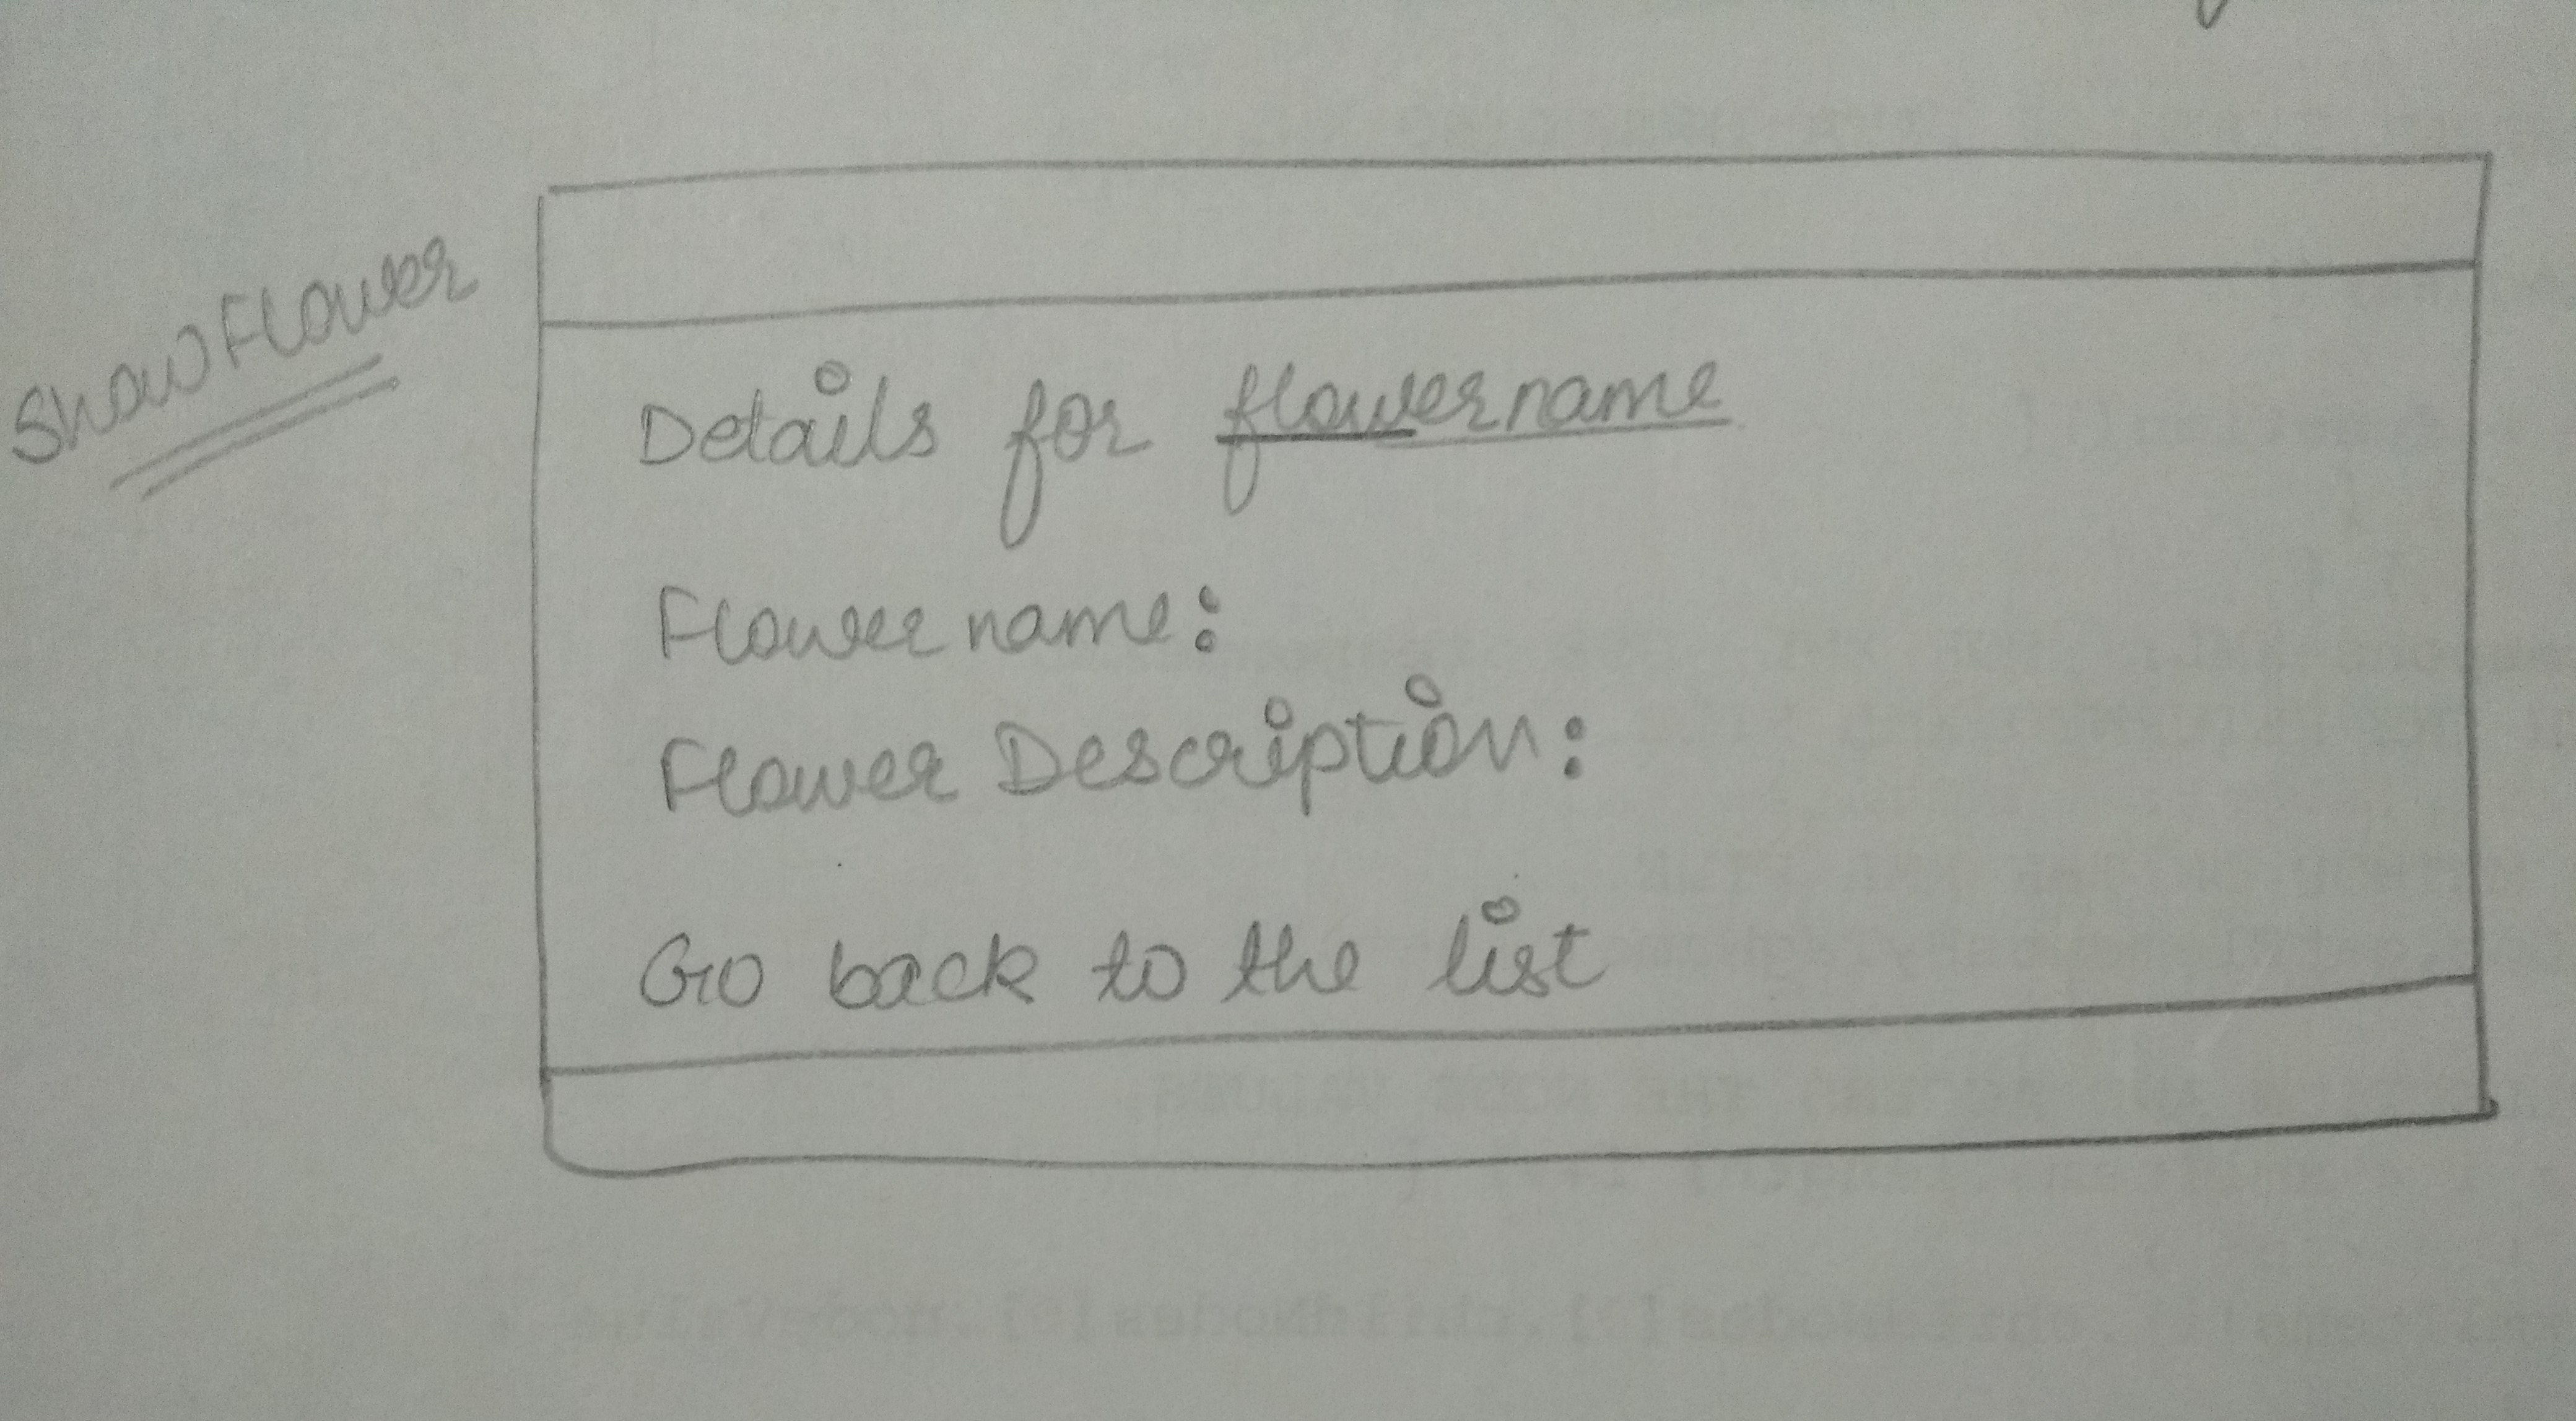 ShowFlower
Details for flowername
Flowername:
Flower Description:
Go back to the list